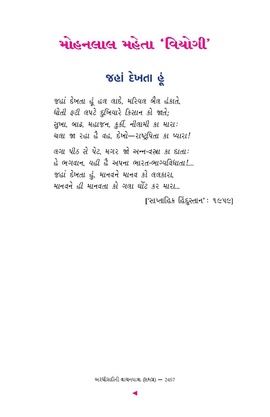 મોહનલાલ મહેતા ‘વિયોગી’
જહાં દેખતા હૂં
જહાં દેખતા હૂં હલ લાદે, મરિયલ બૈલ હંકાતે,
ધોતી ફટી લપટે દુખિયારે કિસાન કો જાતે;
સુખા, બાઢ, મહાજન, કુર્કી, નીલામી કા મારા:
ચલા જા રહા હૈ વહ, દેખો—રાષ્ટ્રપિતા કા પ્યારા!
લગા પીઠ સે પેટ, મગર જો અન્ન-વસ્ત્ર કા દાતા:
હે ભગવાન, વહી હૈ અપના ભારત-ભાગ્યવિધાતા!...
જહાં દેખતા હું, માનવને માનવ કો લલકારા,
માનવને હી માનવતા કો ગલા ઘોંટ કર મારા...
[‘સાપ્તાહિક હિંદુસ્તાન’ : ૧૯૫૯]
અરધી સદીની વાચનયાત્રા (છબન) — 2497